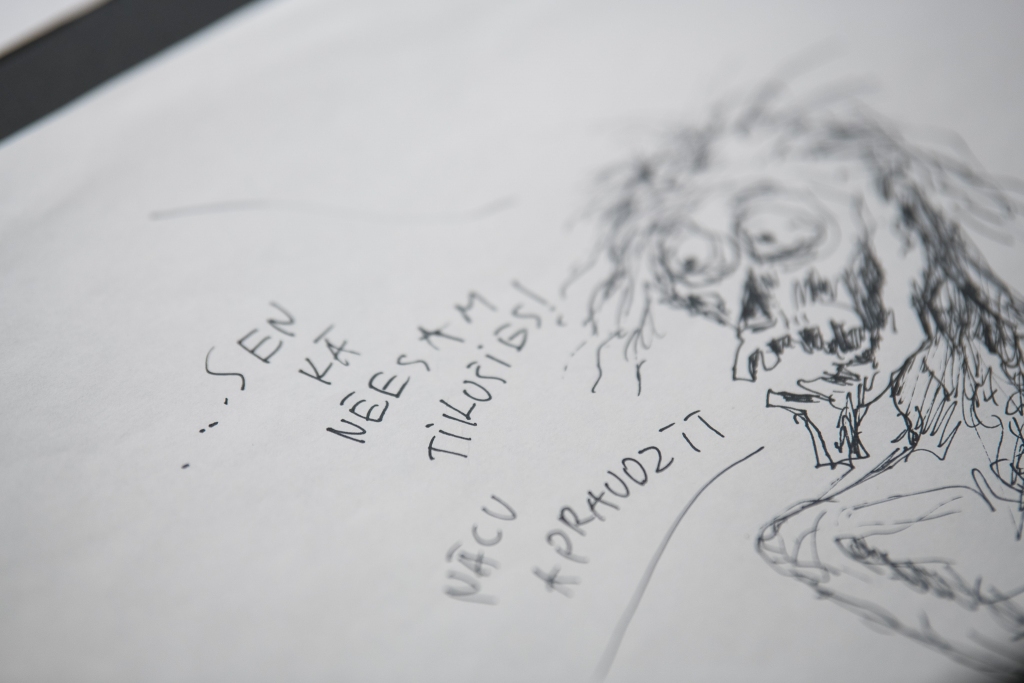 ...SEN
KĀ
NĒESAM
TIKUŠIES!
NĀCU
APRAUDZĪT